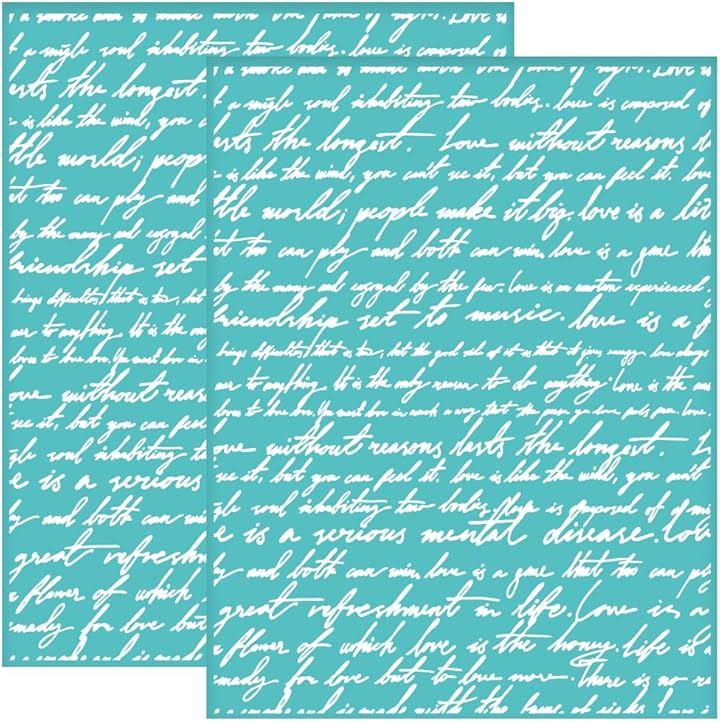 Love is
f a single soul inhabiting two bodies. love is composed of
lests the longest.
e is like the wind, you c
ttle world; peop
at two can play and
by the many and enjoyed
friendship set
brings difficulties, that is true, but
wer to anything. It is the only
loves to love love. You must love in
ove without reas
see it, but you can feel
gle soul inhabiting tw
e is a serious
y and both can win
great refreshm
e flower of which
remedy for love but
and is made
a smoke and is made
Love is
f a single soul inhabiting two bodies. love is composed of
lests the longest. Love without reasons l
e is like the wind, you can't see it, but you can feel it. love
ttle world; people make it big. love is a lit
at two can play and both can win, love is a game th
by the many and enjoyed by the few. Love is an emotion experienced
friendship set to music. love is a f
brings difficulties, that is true, but the good side of it is that it gives energy. love always
wer to anything. It is the only reason to do anything. Love is the ans
loves to love love. You must love in such a way that the person you love feels free. Love
ove without reasons lests the longest. L
see it, but you can feel it. love is like the wind, you can't
gle soul inhabiting two bodies. Love is composed of a sin
e is a serious mental disease. Lov
y and both can win, love is a game that two can pl
great refreshment in life. Love is a
e flower of which love is the honey. life is a
remedy for love but to love more. There is no re
a smoke and is made with the fume of sighs. Love i